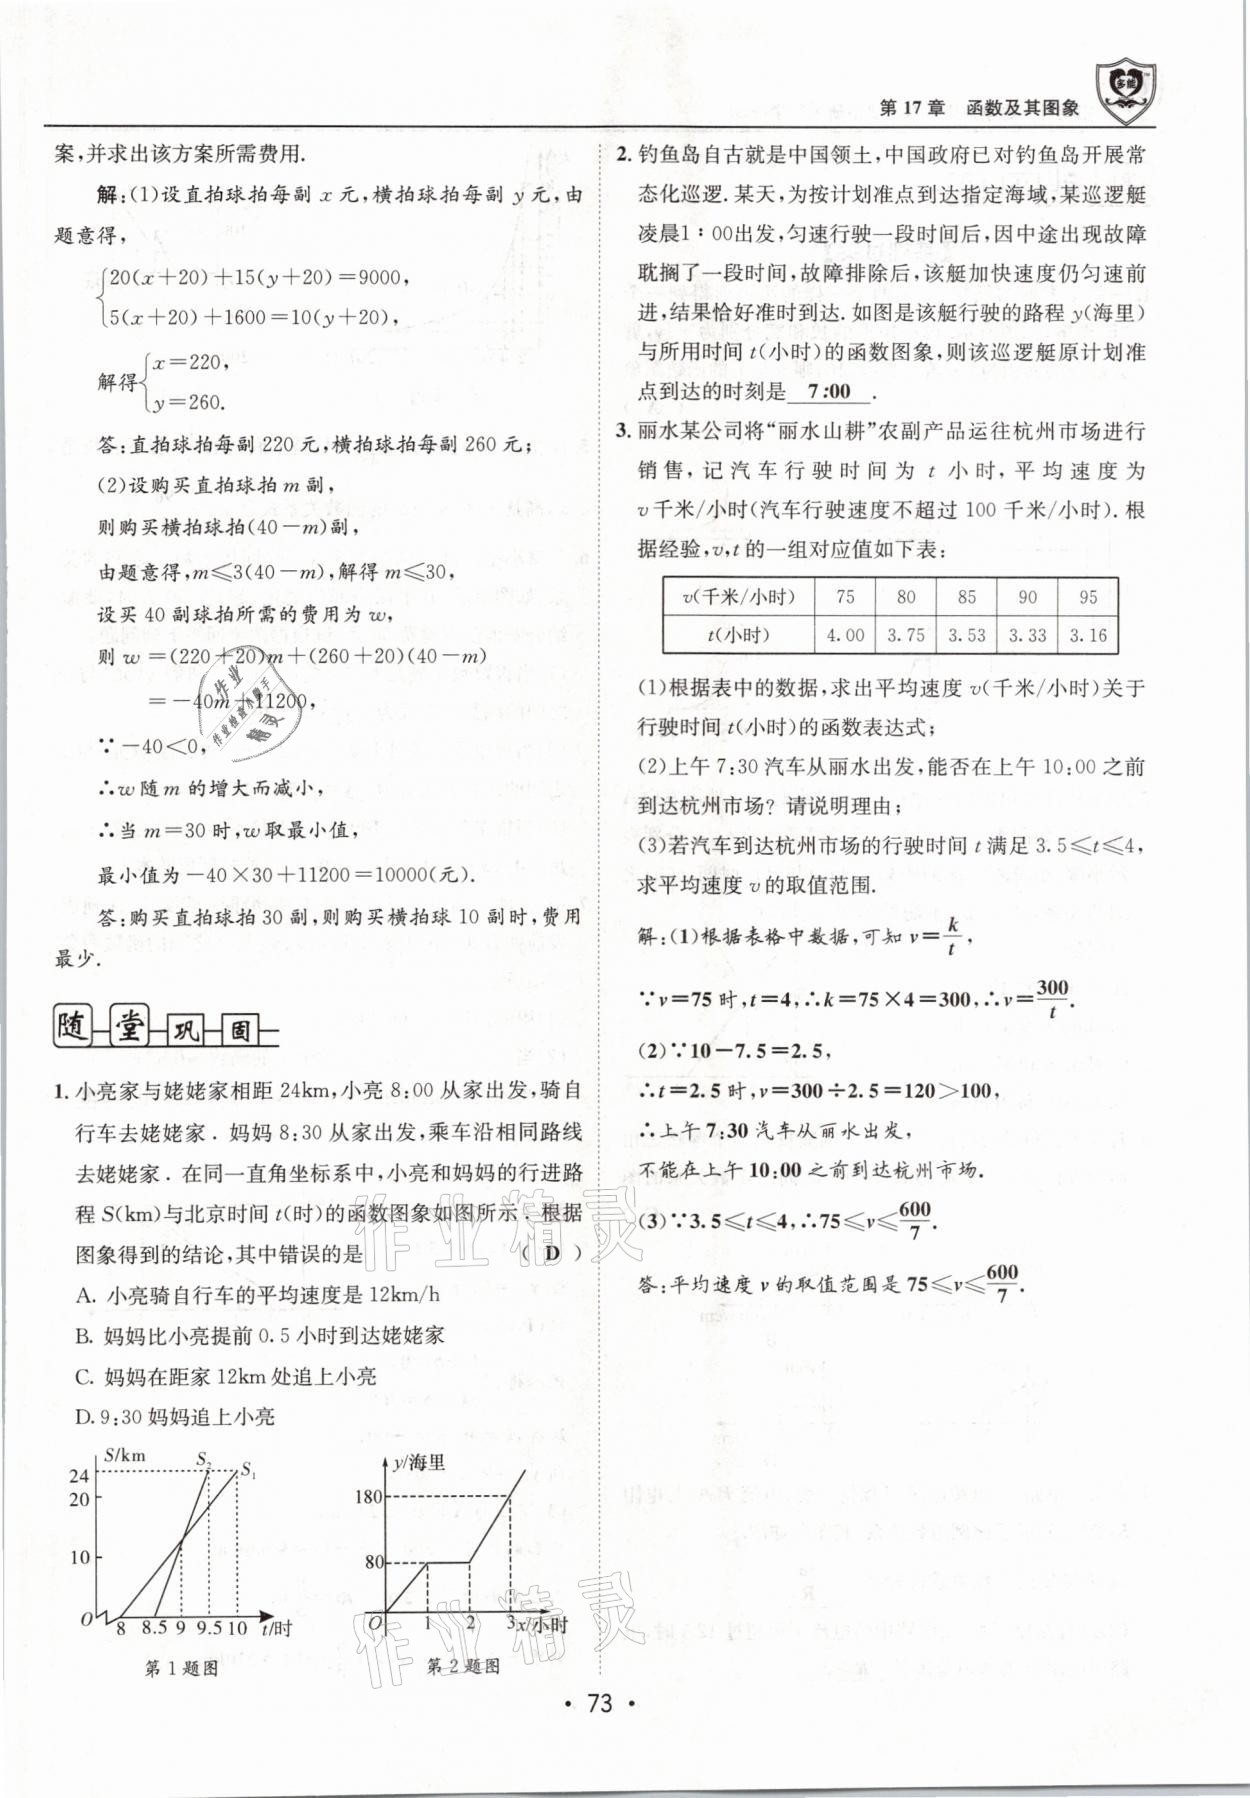 第17章 函数及其图象
案,并求出该方案所需费用.
解:(1)设直拍球拍每副 x 元,横拍球拍每副 y 元,由
题意得,
{20(x+20)+15(y+20)=9000,
5(x+20)+1600=10(y+20),
解得{x=220,
y=260.
答:直拍球拍每副 220 元,横拍球拍每副 260 元;
(2)设购买直拍球拍 m 副,
则购买横拍球拍(40-m)副,
由题意得,m≤3(40-m),解得 m≤30,
设买 40 副球拍所需的费用为 w,
则 w=(220+20)m+(260+20)(40-m)
=-40m+11200,
∵-40<0,
∴w 随 m 的增大而减小,
∴当 m=30 时,w 取最小值,
最小值为-40×30+11200=10000(元).
答:购买直拍球拍 30 副,则购买横拍球 10 副时,费用
最少.
随堂巩固
1. 小亮家与姥姥家相距 24km,小亮 8:00 从家出发,骑自
行车去姥姥家. 妈妈 8:30 从家出发,乘车沿相同路线
去姥姥家. 在同一直角坐标系中,小亮和妈妈的行进路
程 S(km)与北京时间 t(时)的函数图象如图所示. 根据
图象得到的结论,其中错误的是 ( D )
A. 小亮骑自行车的平均速度是 12km/h
B. 妈妈比小亮提前 0.5 小时到达姥姥家
C. 妈妈在距家 12km 处追上小亮
D. 9:30 妈妈追上小亮
S/km
S₂
S₁
24
20
10
O
8 8.5 9 9.5 10 t/时
第 1 题图
y/海里
180
80
O 1 2 3 x/小时
第 2 题图
2. 钓鱼岛自古就是中国领土,中国政府已对钓鱼岛开展常
态化巡逻. 某天,为按计划准点到达指定海域,某巡逻艇
凌晨1:00出发,匀速行驶一段时间后,因中途出现故障
耽搁了一段时间,故障排除后,该艇加快速度仍匀速前
进,结果恰好准时到达. 如图是该艇行驶的路程 y(海里)
与所用时间 t(小时)的函数图象,则该巡逻艇原计划准
点到达的时刻是 7:00 .
3. 丽水某公司将“丽水山耕”农副产品运往杭州市场进行
销售,记汽车行驶时间为 t 小时,平均速度为
v 千米/小时(汽车行驶速度不超过 100 千米/小时). 根
据经验,v,t 的一组对应值如下表:
v(千米/小时) 75 80 85 90 95
t(小时) 4.00 3.75 3.53 3.33 3.16
(1)根据表中的数据,求出平均速度 v(千米/小时)关于
行驶时间 t(小时)的函数表达式;
(2)上午 7:30 汽车从丽水出发,能否在上午 10:00 之前
到达杭州市场? 请说明理由;
(3)若汽车到达杭州市场的行驶时间 t 满足 3.5≤t≤4,
求平均速度 v 的取值范围.
解:(1)根据表格中数据,可知 v=k/t,
∵v=75 时,t=4,∴k=75×4=300,∴v=300/t.
(2)∵10-7.5=2.5,
∴t=2.5 时,v=300÷2.5=120>100,
∴上午 7:30 汽车从丽水出发,
不能在上午 10:00 之前到达杭州市场.
(3)∵3.5≤t≤4,∴75≤v≤600/7.
答:平均速度 v 的取值范围是 75≤v≤600/7.
· 73 ·
作业精灵
作业检查小助手
作业精灵
作业精灵